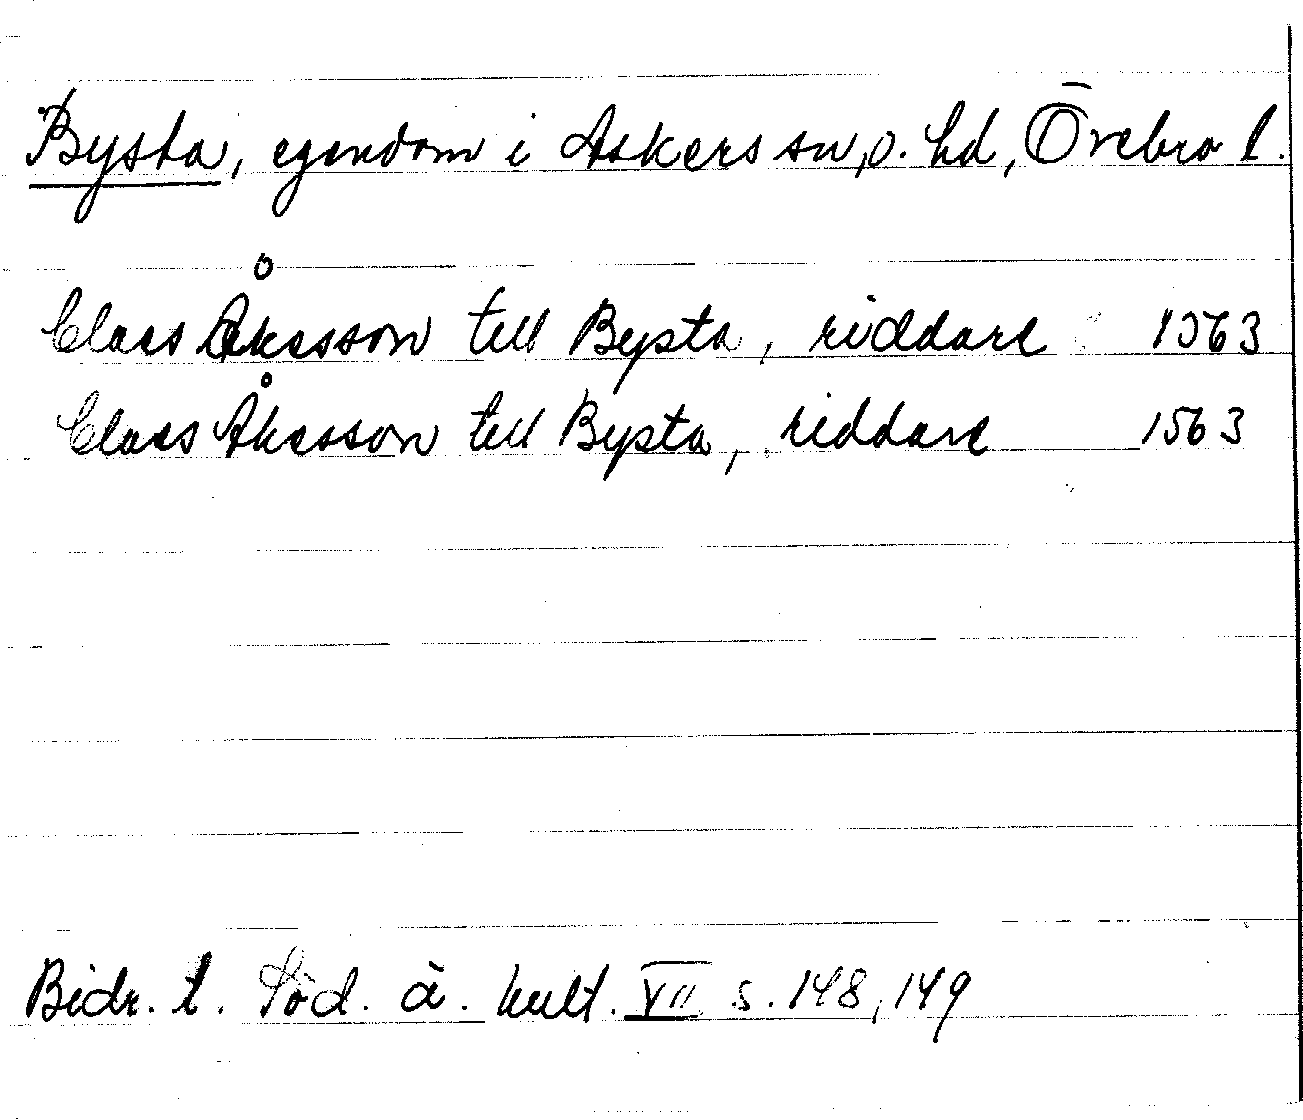 Bysta, egendom i Askers sn, o. hd, Örebro l.
Claes Åkesson till Bysta, riddare 1563
Claes Åkesson till Bysta, riddare 1563
Bidr. t. Söd. ä. kult. VII s. 148, 149